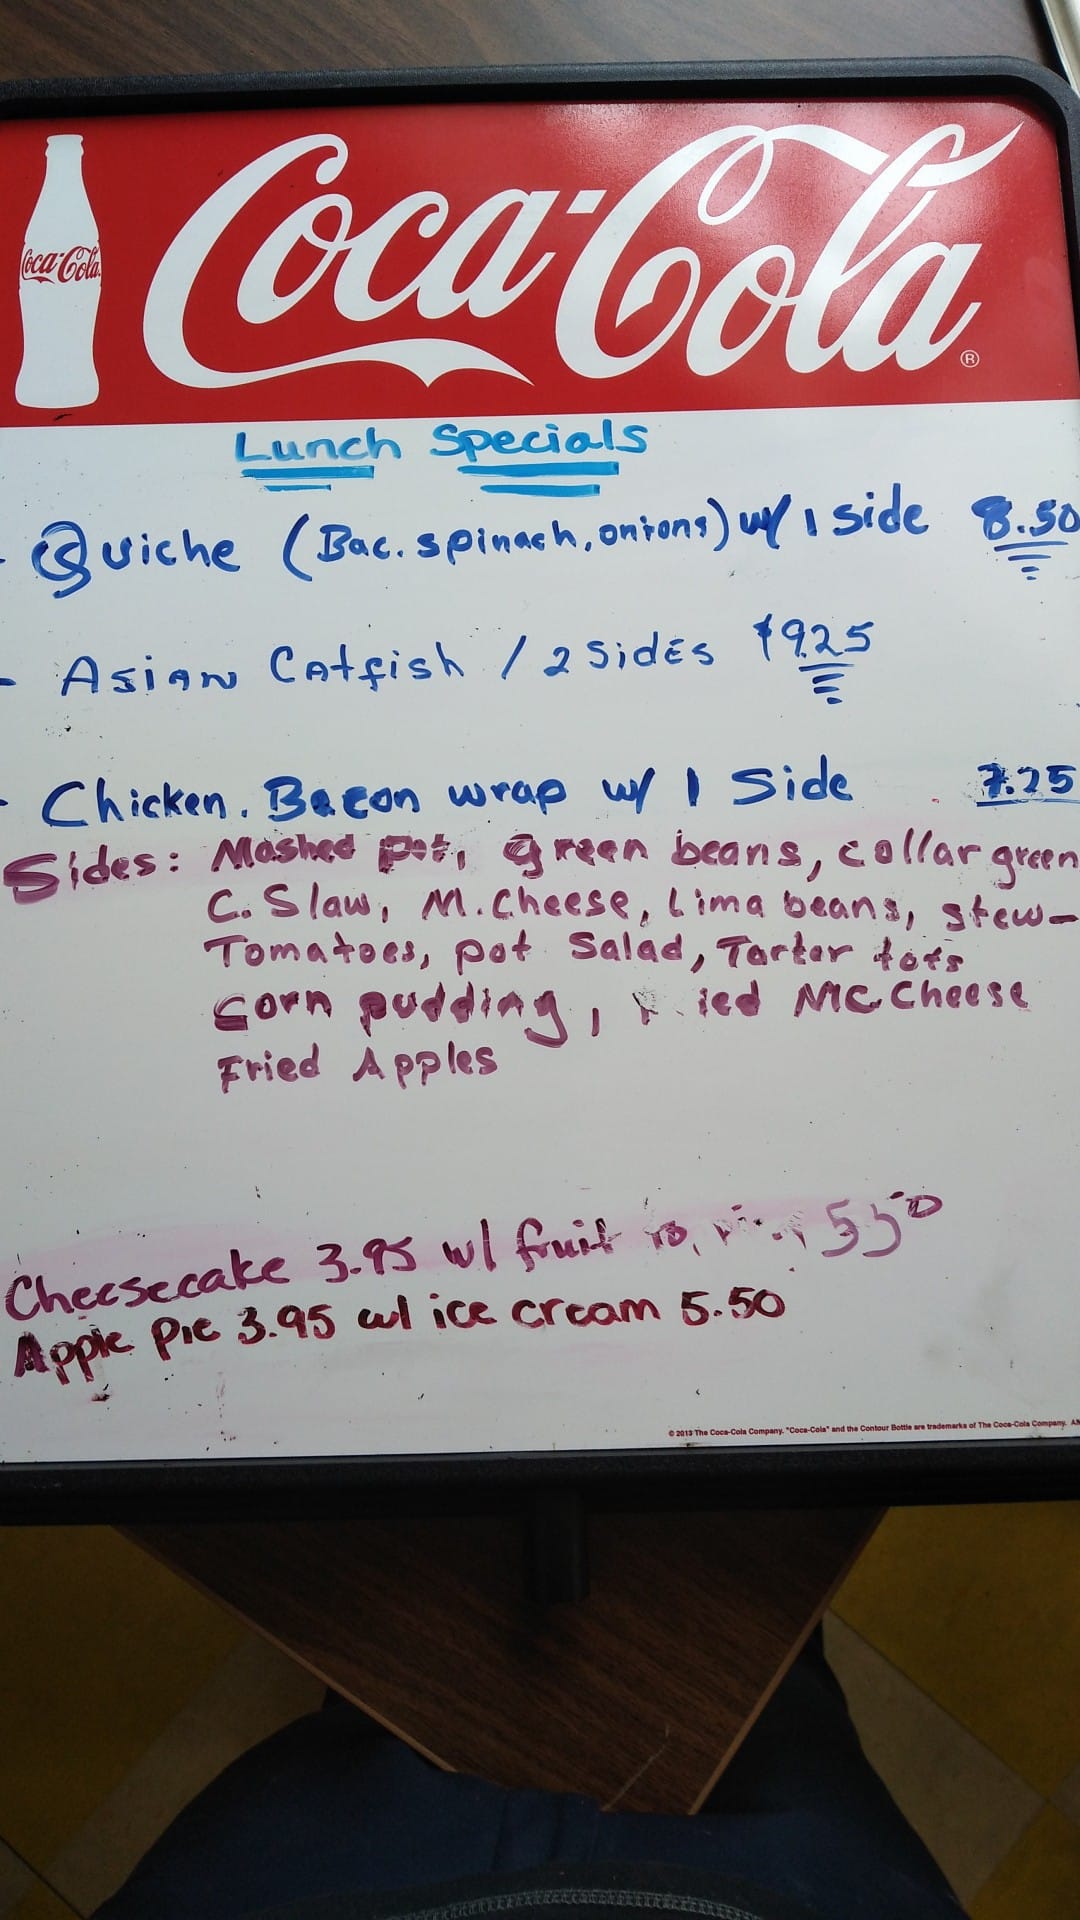 Coca-Cola
Coca-Cola®
Lunch Specials
- Quiche (Bac. spinach, onions) w/ 1 side 8.50
- Asian Catfish / 2 Sides $9.25
- Chicken. Bacon wrap w/ 1 Side 7.25
Sides: Mashed pot, green beans, collar green
C. Slaw, M. Cheese, Lima beans, stew-
Tomatoes, pot Salad, Tarter tots
Corn pudding, Mc Cheese
Fried Apples
Cheesecake 3.95 w/ fruit 550
Apple Pie 3.95 w/ ice cream 5.50
© 2013 The Coca-Cola Company. "Coca-Cola" and the Contour Bottle are trademarks of The Coca-Cola Company.